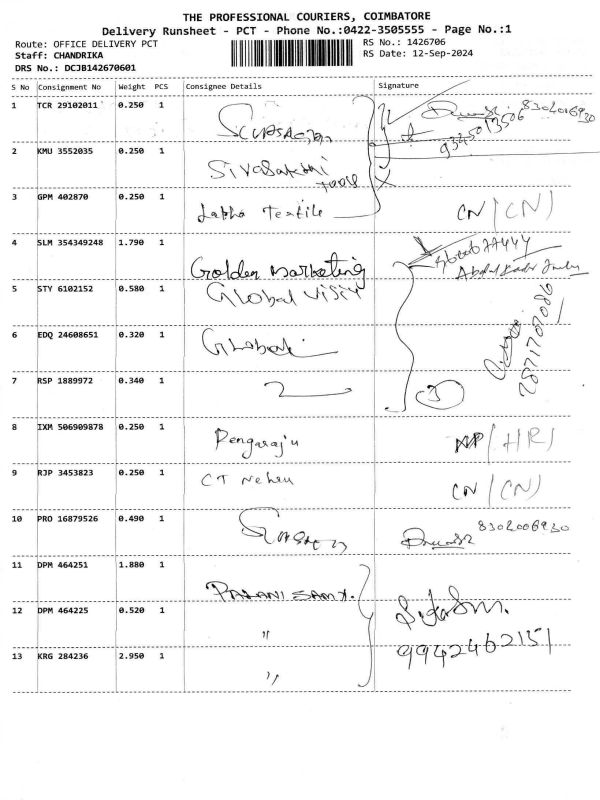 THE PROFESSIONAL COURIERS, COIMBATORE
Delivery Runsheet - PCT - Phone No.:0422-3505555 - Page No.:1
Route: OFFICE DELIVERY PCT
RS No.: 1426706
Staff: CHANDRIKA
RS Date: 12-Sep-2024
DRS No.: DCJB142670601
S No Consignment No Weight PCS Consignee Details Signature
1 TCR 29102011 0.250 1 8302006930
9345013506
2 KMU 3552035 0.250 1 Sivasakthi
Tools
3 GPM 402870 0.250 1 Textile CN/(CN)
4 SLM 354349248 1.790 1 Golden Marketing
5 STY 6102152 0.580 1 Global
6 EDQ 24608651 0.320 1 Global
7 RSP 1889972 0.340 1 3
8 IXM 506909878 0.250 1 Rengaraju NP/(HR)
9 RJP 3453823 0.250 1 CT Nehru CN/(CN)
10 PRO 16879526 0.490 1 8302006930
11 DPM 464251 1.880 1 PALANISAMY.
12 DPM 464225 0.520 1 "
9942462151
13 KRG 284236 2.950 1 "